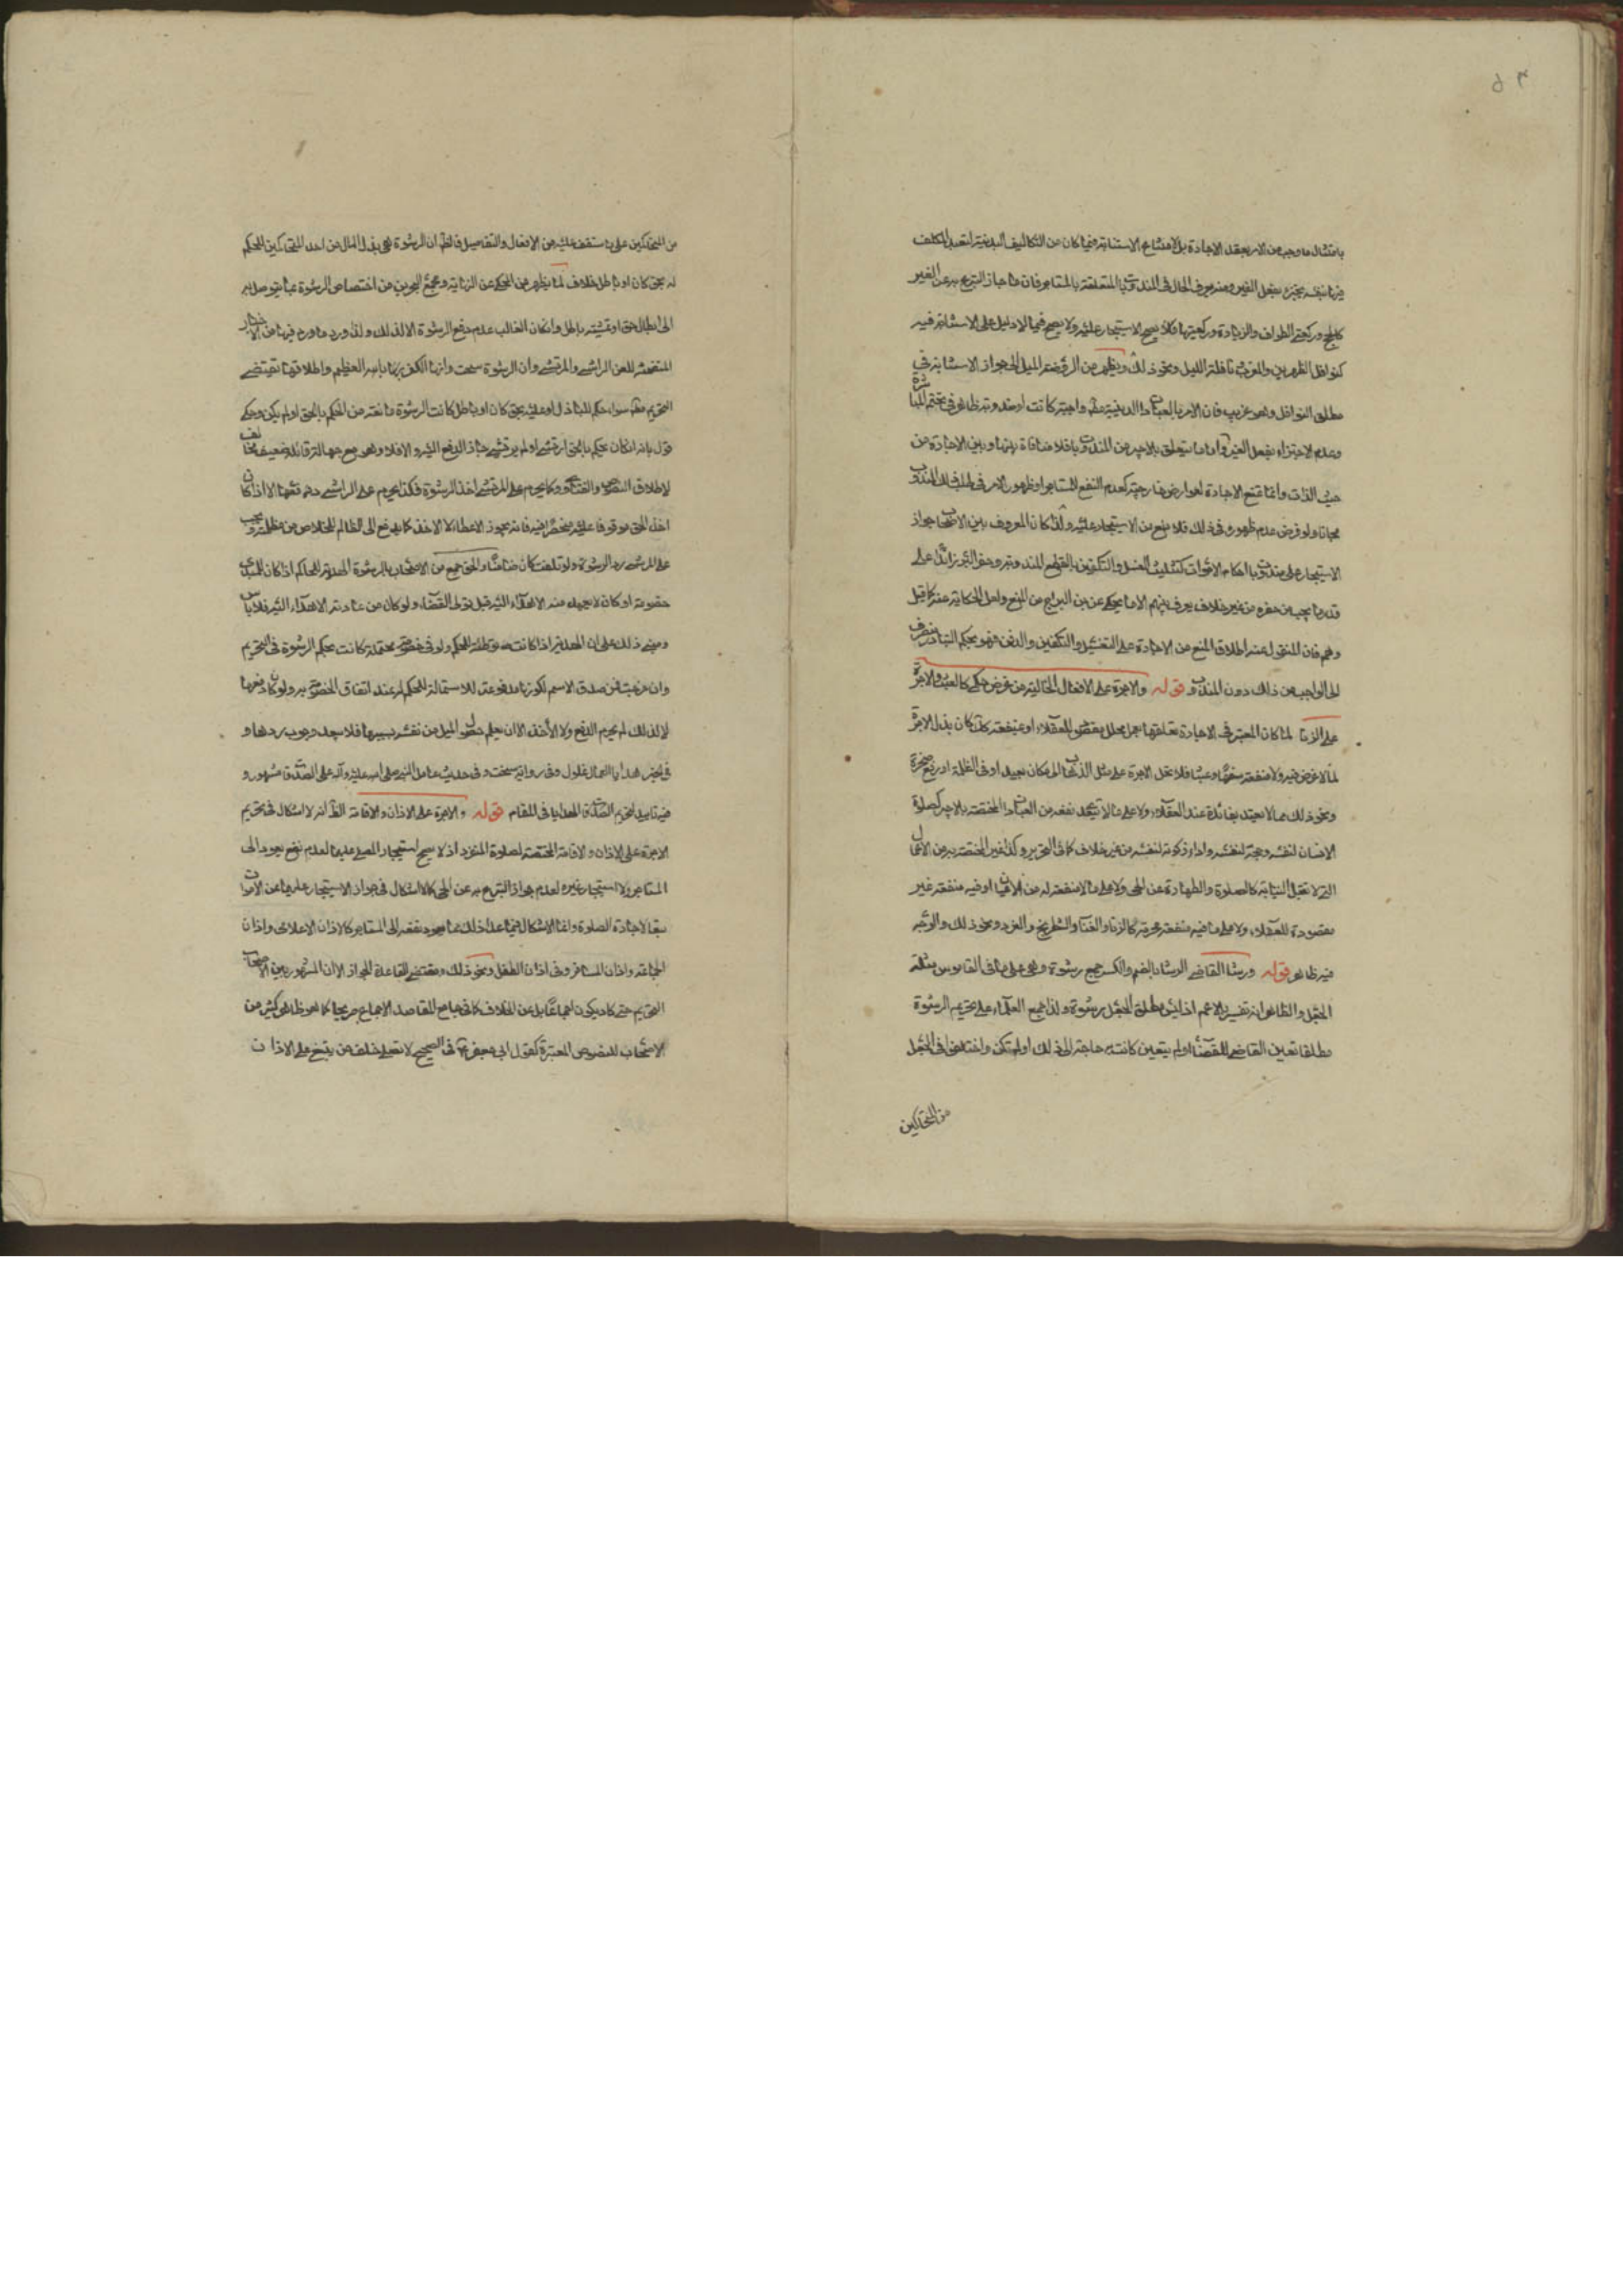 بامتثال ما وجب من الامر بعقد الاجارة بل لامتناع الاستنابة فيما كان من التكاليف البدنية لتعبد المكلف
فيها بنفسه بفعل الغير ومنه يعرف الحال في المندوبات المتعلقة بالمستاجر فان ما جاز التبرع به عن الغير
كالحج وركعتي الطواف والزيادة وركعتيها فلا الاستيجار عليه ولا يصح فيما لا دليل على الاستنابة فيه
كنوافل الظهرين والمغرب نافلة الليل ونحو ذلك ويظهر من الروضة الميل الى جواز الاستنابة في
مطلق النوافل وهو غريب فان الامر بالعبادات البدنية واجبة كانت او مندوبة ظاهر في تحتم المباشرة
وعدم الاجتزاء بفعل الغير واما ما يتعلق بالاجير من المندوبات فلا منافاة بينها وبين الاجارة من
حيث الذات وانما تمنع الاجارة لعوارض خارجية كعدم النفع للمستاجر او ظهور الامر في طلب ذلك المندوب
مجانا ولو فرض عدم ظهوره في ذلك فلا مانع من الاستيجار عليه ولذا كان المعروف بين الاصحاب جواز
الاستيجار على مندوبات احكام الاموات كتثليث الغسل والتكفين بالقطع المندوبة وحفر القبر زائدا على
قدر ما يجب من حفره من غير خلاف يعرف بينهم الا ما يحكى عن ابن البراج من المنع ولعل الحكاية عنه كما قيل
وهم فان المنقول عنه اطلاق المنع من الاجارة على التغسيل والتكفين والدفن وهو بحكم التبادر منصرف
الى الواجب من ذلك دون المندوب قوله والاجرة على الافعال الخالية من غرض حكمي كالعبث والاجرة
على الزنا لما كان المعتبر في الاجارة تعلقها بعمل محلل مقصود للعقلاء او منفعة كان بذل الاجرة
لما لا غرض فيه ولا منفعة سفها وعبثا فلا تحل الاجرة على مثل الذهاب الى مكان بعيد او في الظلمة او رفع صخرة
ونحو ذلك مما لا يعتد بفائدة عند العقلاء ولا على ما لا يتعدى نفعه من العبادات المختصة بالاجير كصلوة
الانسان لنفسه وحجه لنفسه واداء زكوته لنفسه من غير خلاف كما في التحرير وكذا غير المختصة به من الاعمال
التي لا تقبل النيابة كالصلوة والطهارة عن الحي ولا على ما لا منفعة له من الاعيان او فيه منفعة غير
مقصودة للعقلاء ولا على ما فيه منفعة محرمة كالزنا والغناء والشطرنج والنرد ونحو ذلك والوجه
فيه ظاهر قوله ورشا القاضي الرشا بالضم والكسر جمع رشوة وهي على ما في القاموس مثلثة
الجعل والظاهر انه تفسير بالاعم اذ ليس مطلق الجعل رشوة ولذا اجمع العلماء على تحريم الرشوة
مطلقا تعين القاضي للقضاء او لم يتعين كانت به حاجة الى ذلك او لم تكن واختلفوا في الجعل
من المتحاكمين
من المتحاكمين على ما ستقف عليه من الاقوال والتفاصيل فالظاهر ان الرشوة هي بذل المال من احد المتحاكمين للحكم
له بحق كان او باطل خلافا لما يظهر من المحكي عن النهاية ومجمع البحرين من اختصاص الرشوة بما يتوصل به
الى ابطال حق او تمشية باطل وان كان الغالب عدم دفع الرشوة الا لذلك ولذا ورد ما ورد فيها من الاخبار
المتضمنة للعن الراشي والمرتشي وان الرشوة سحت وانها الكفر بالله العظيم واطلاقها تقتضي
التحريم سواء حكم للباذل او عليه بحق كان او باطل كانت الرشوة مانعة من الحكم بالحق او لم يكن وحكى
قول بانه ان كان يحكم بالحق ارتشى او لم يرتش جاز الدفع اليه والا فلا وهو مع جهالة قائله ضعيف مخالف
لاطلاق النصوص والفتاوى وكما يحرم على المرتشي اخذ الرشوة فكذا يحرم على الراشي دفعها الا اذا كان
اخذ الحق موقوفا عليه فانه يجوز الاعطاء لا الاخذ كما يدفع الى الظالم للخلاص من مظلمته ويجب
على المرتشي رد الرشوة ولو تلفت كان ضامنا والحق جمع من الاصحاب بالرشوة الهدية للحاكم اذا كان للمهدي
خصومة او كان لا يعهد منه الاهداء اليه قبل تولى القضاء ولو كان من عادته الاهداء اليه فلا باس
ومبنى ذلك على ان الهدية اذا كانت توطئة للحكم ولو في خصومة محتملة كانت بحكم الرشوة في التحريم
وان صدق الاسم لكونها مدفوعة للاستمالة للحكم له عند اتفاق الخصومة به ولو كان دفعها
لا لذلك لم يحرم الدفع ولا الاخذ الا ان يعلم حصول الميل من نفسه بسببها فلا يبعد وجوب ردها و
في الخبر هدايا العمال غلول وفي رواية سحت وفي حديث عامل النبي صلى الله عليه وآله على الصدقات مشهور و
فيه تاييد لتحريم الهدايا في المقام قوله والاجرة على الاذان والاقامة الظاهر انه لا اشكال في تحريم
الاجرة على الاذان والاقامة المختصة لصلوة المنفرد اذ لا يصح استيجار المصلي عليهما لعدم نفع يعود الى
المستاجر ولا استيجار غيره لعدم جواز التبرع به عن الحي كما لا اشكال في جواز الاستيجار عليهما عن الاموات
تبعا لاجارة الصلوة وانما الاشكال فيما عدا ذلك مما يعود نفعه الى المستاجر كالاذان الاعلامي واذان
الجماعة واذان المسافر وفي اذان الطفل ونحو ذلك ومقتضى القاعدة الجواز الا ان المشهور بين الاصحاب
التحريم حتى كاد يكون اجماعا بل عن الخلاف كما في جامع المقاصد الاجماع صريحا كما هو ظاهر كثير من
الاصحاب للنصوص المعتبرة كقول ابي جعفر ع في الصحيح لا تصلى خلف من يبتغي على الاذان